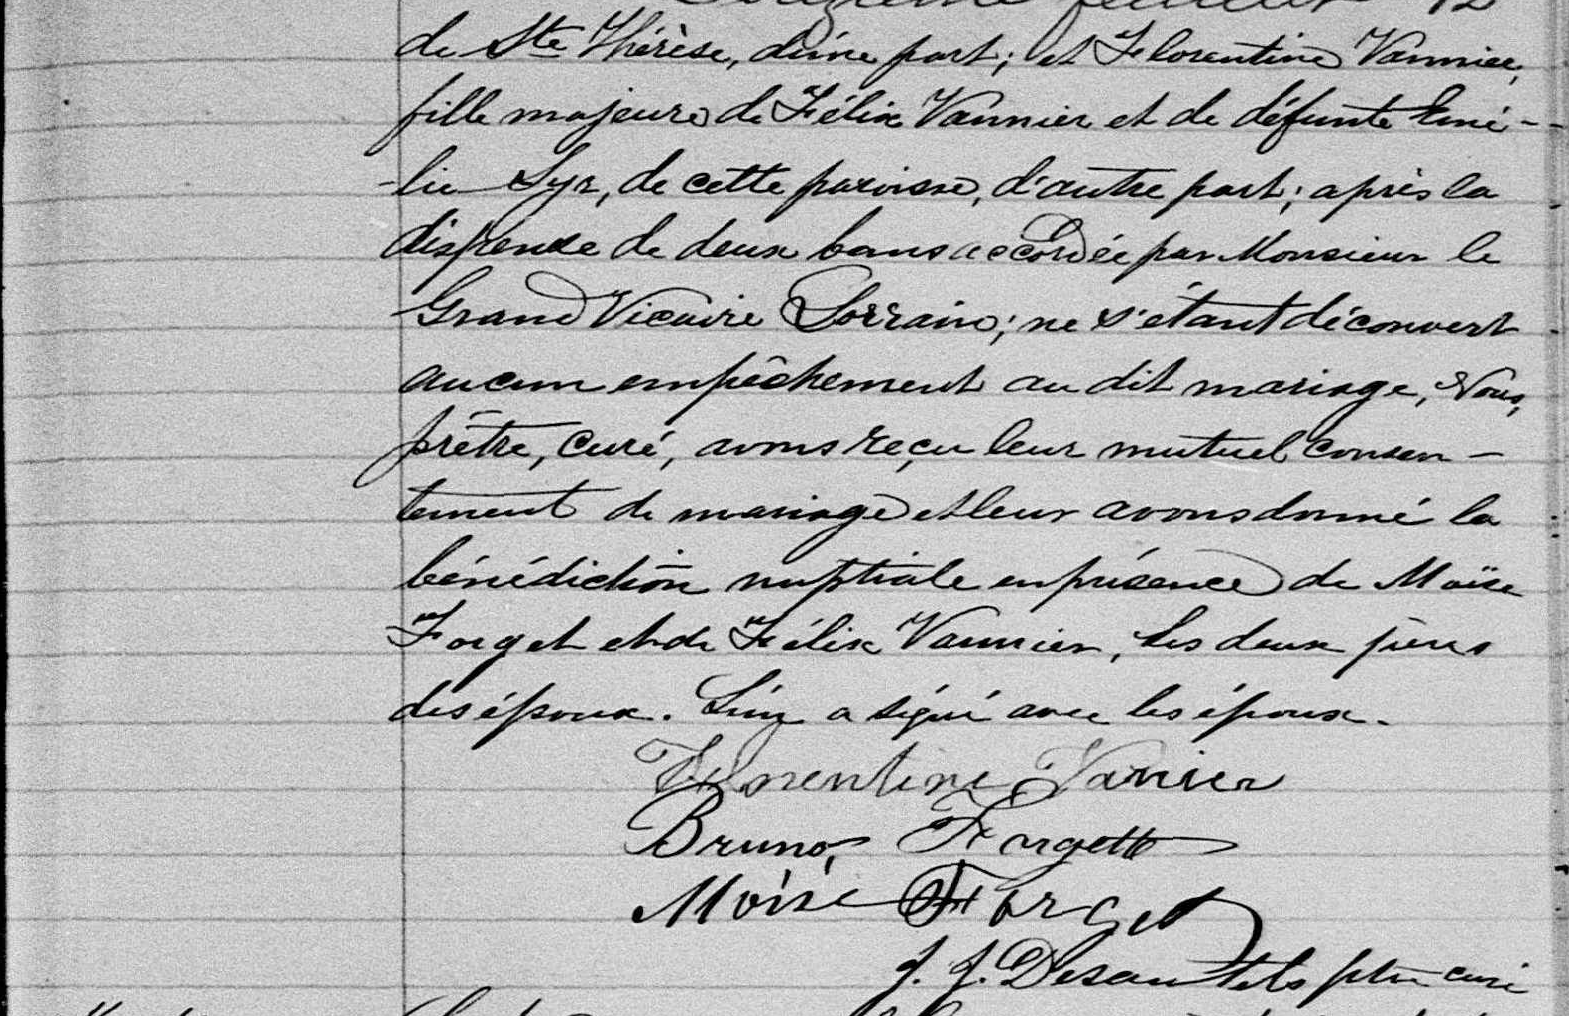 Douzième feuillet 12
de Ste Thérèse, d'une part; et Florentine Vannier,
fille majeure de Félix Vannier et de défunte Emé-
-lie Cyr, de cette paroisse, d'autre part; après la
dispense de deux bans accordée par Monsieur le
Grand Vicaire Lorrain; ne s'étant découvert
aucun empêchement au dit mariage, Nous,
prêtre, curé, avons reçu leur mutuel consen-
tement de mariage et leur avons donné la
bénédiction nuptiale en présence de Moïse
Forget et de Félix Vannier, les deux pères
des époux. L'un a signé avec les époux.
Florentine Vanier
Bruno Forgette
Moïse Forget
J. J. Desautels ptre curé